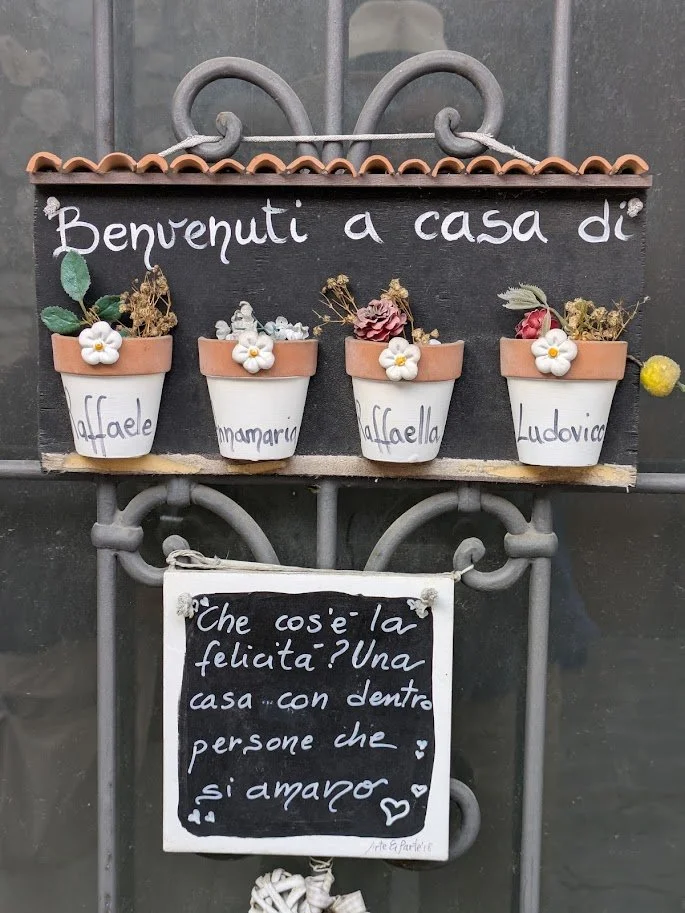 Benvenuti a casa di
Raffaele
Annamaria
Raffaella
Ludovica
Che cos'è la
felicità? Una
casa con dentro
persone che
si amano